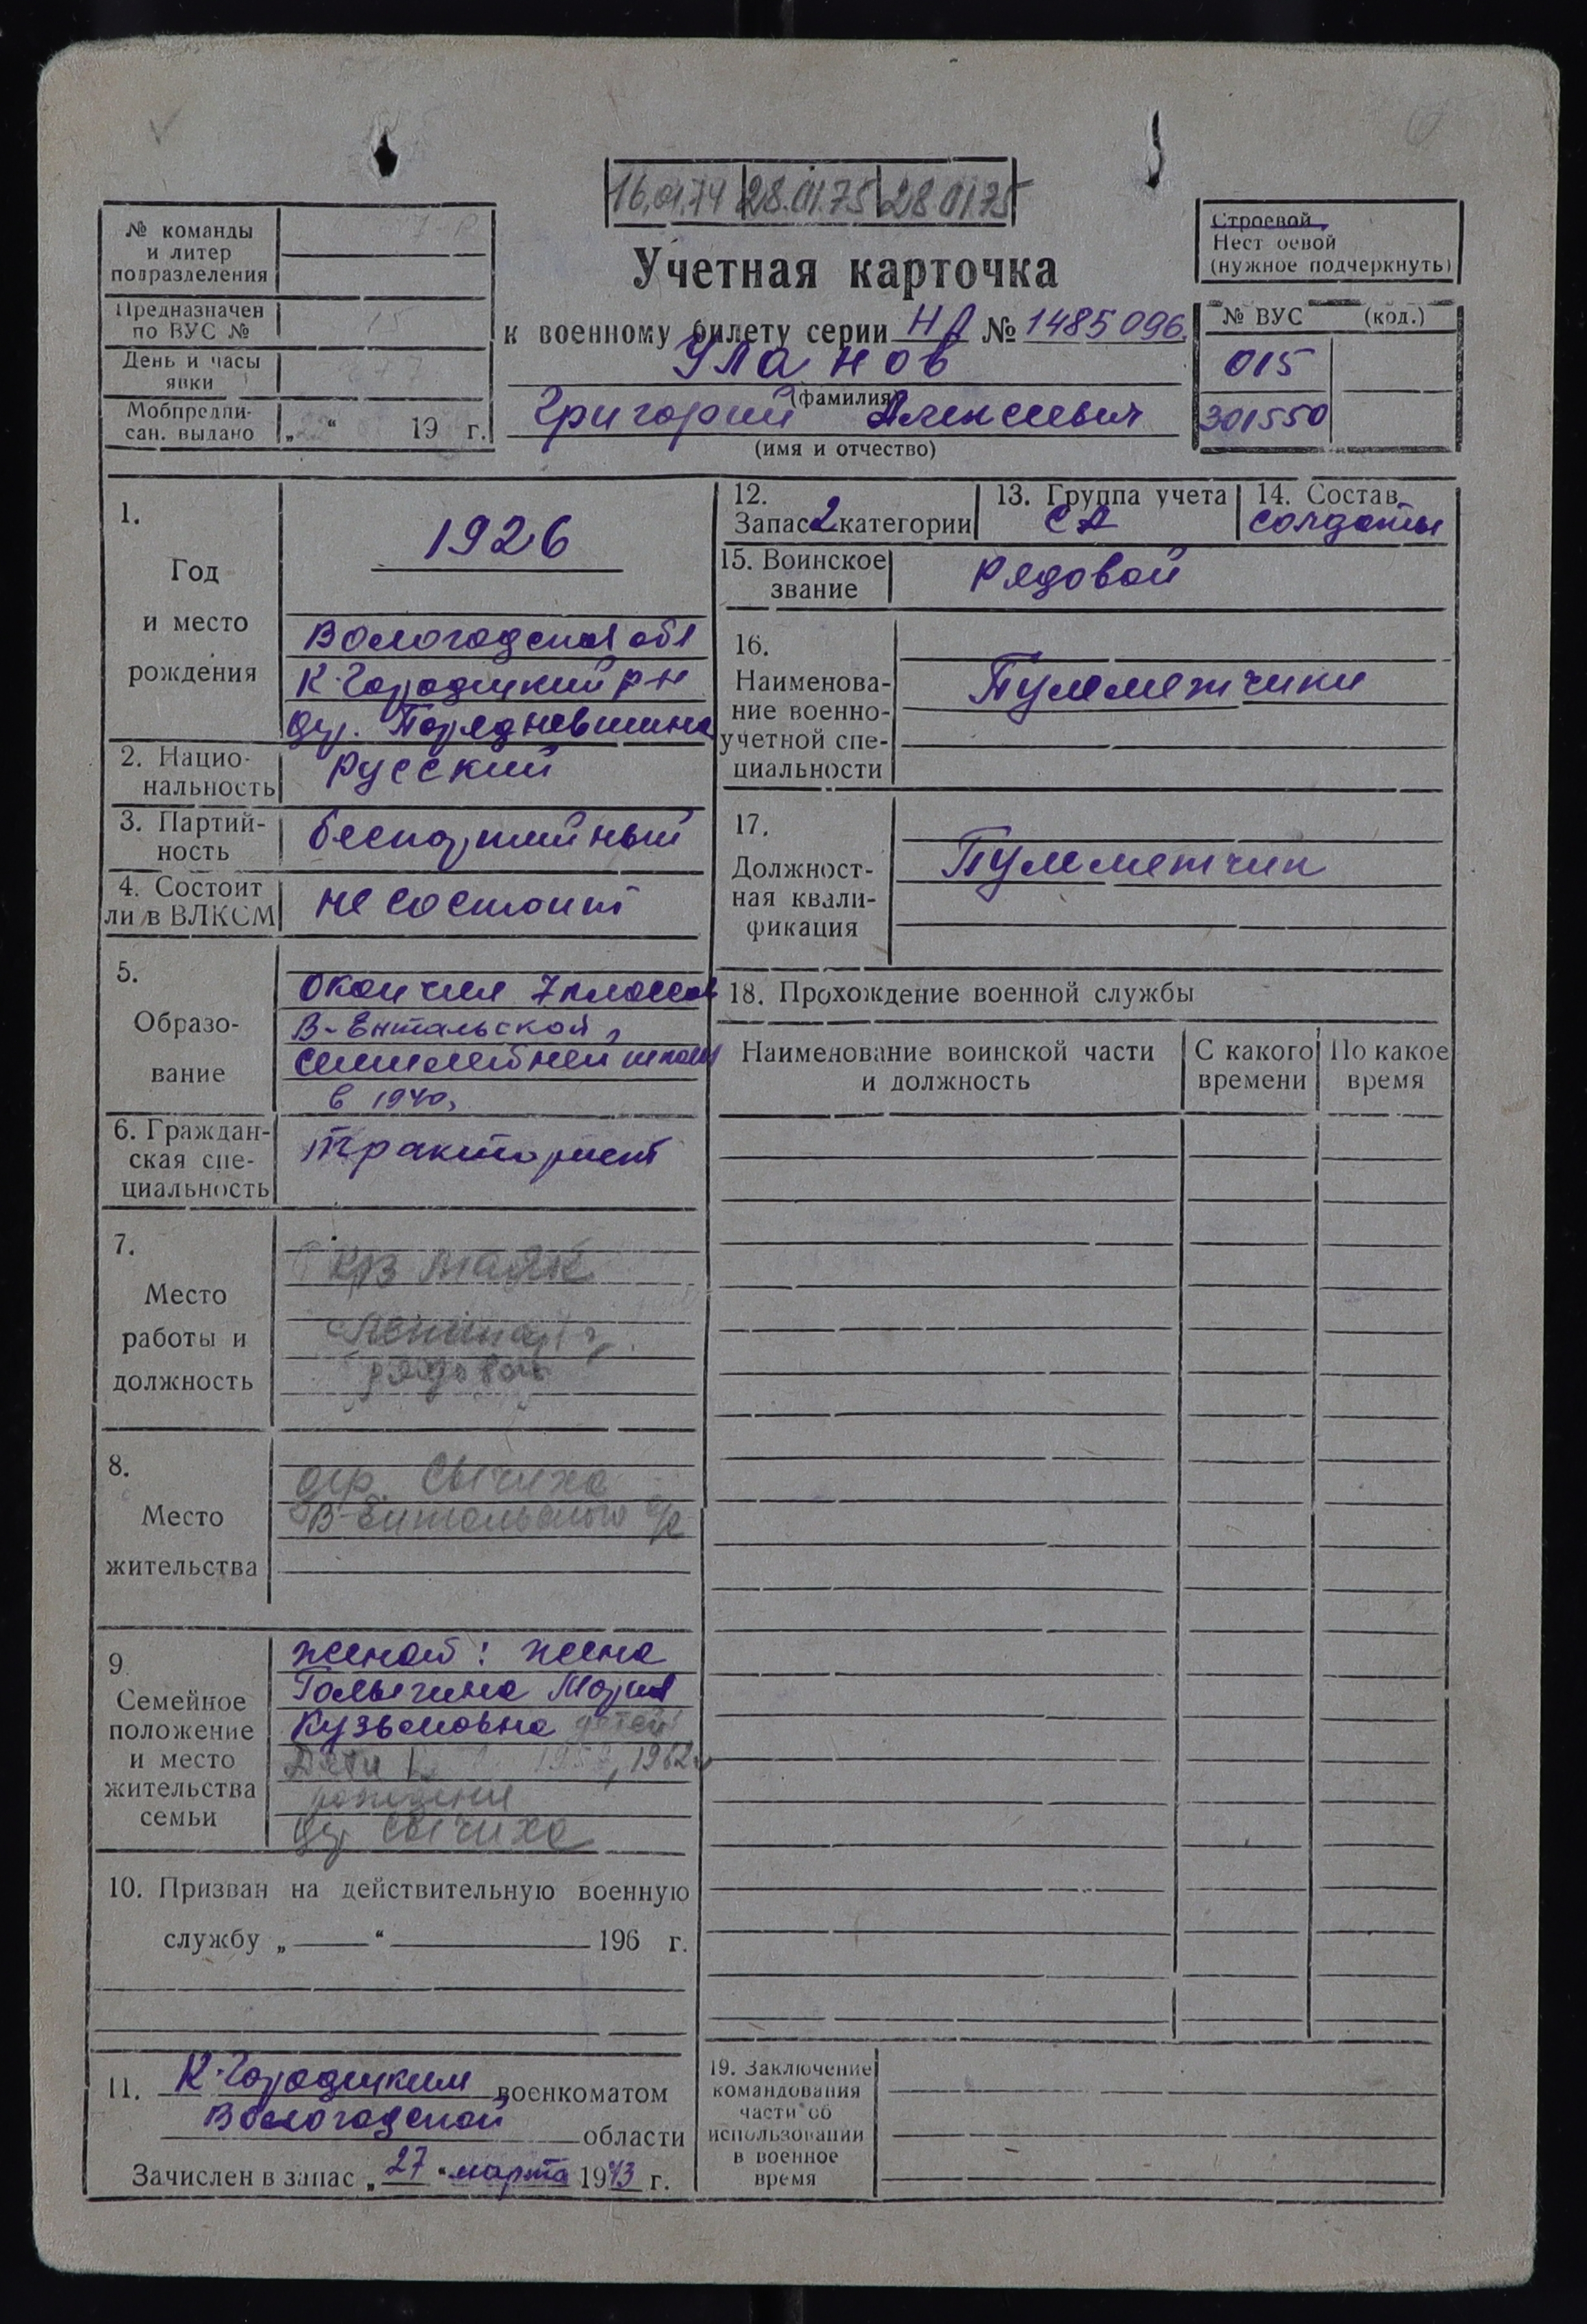 16.01.74 28.01.75 28 01.75
№ команды
и литер
подразделения
Предназначен
по ВУС №
15
День и часы
явки
Мобпредпи-
сан. выдано „22“ 19 г.
Учетная карточка
к военному билету серии НД № 1485096.
Уланов
(фамилия)
Григорий Алексеевич
(имя и отчество)
Строевой
Нест оевой
(нужное подчеркнуть)
№ ВУС (код.)
015
301550
1.
Год
и место
рождения
1926
Вологодская обл
К-Городецкий р-н
дер.
2. Нацио-
нальность
русский
3. Партий-
ность
беспартийный
4. Состоит
ли в ВЛКСМ
не состоит
5.
Образо-
вание
Окончил 7 классов
В-Ентальской
семилетней школы
в 1940,
6. Граждан-
ская спе-
циальность
тракторист
7.
Место
работы и
должность
к/з маяк
рядовой
8.
Место
жительства
дер. Сычиха
В-Ентальского с/с
9.
Семейное
положение
и место
жительства
семьи
женат: жена
Голыгина Мария
Кузьмовна детей
Дети 1962
рождения
дер Сычиха
10. Призван на действительную военную
службу „ “ 196 г.
11. К-Городецким военкоматом
Вологодской области
Зачислен в запас „27“ марта 1943 г.
12.
Запас 2 категории
13. Группа учета
СА
14. Состав
солдаты
15. Воинское
звание
рядовой
16.
Наименова-
ние военно-
учетной спе-
циальности
Пулеметчики
17.
Должност-
ная квали-
фикация
Пулеметчик
18. Прохождение военной службы
Наименование воинской части
и должность
С какого
времени
По какое
время
19. Заключение
командования
части об
использовании
в военное
время